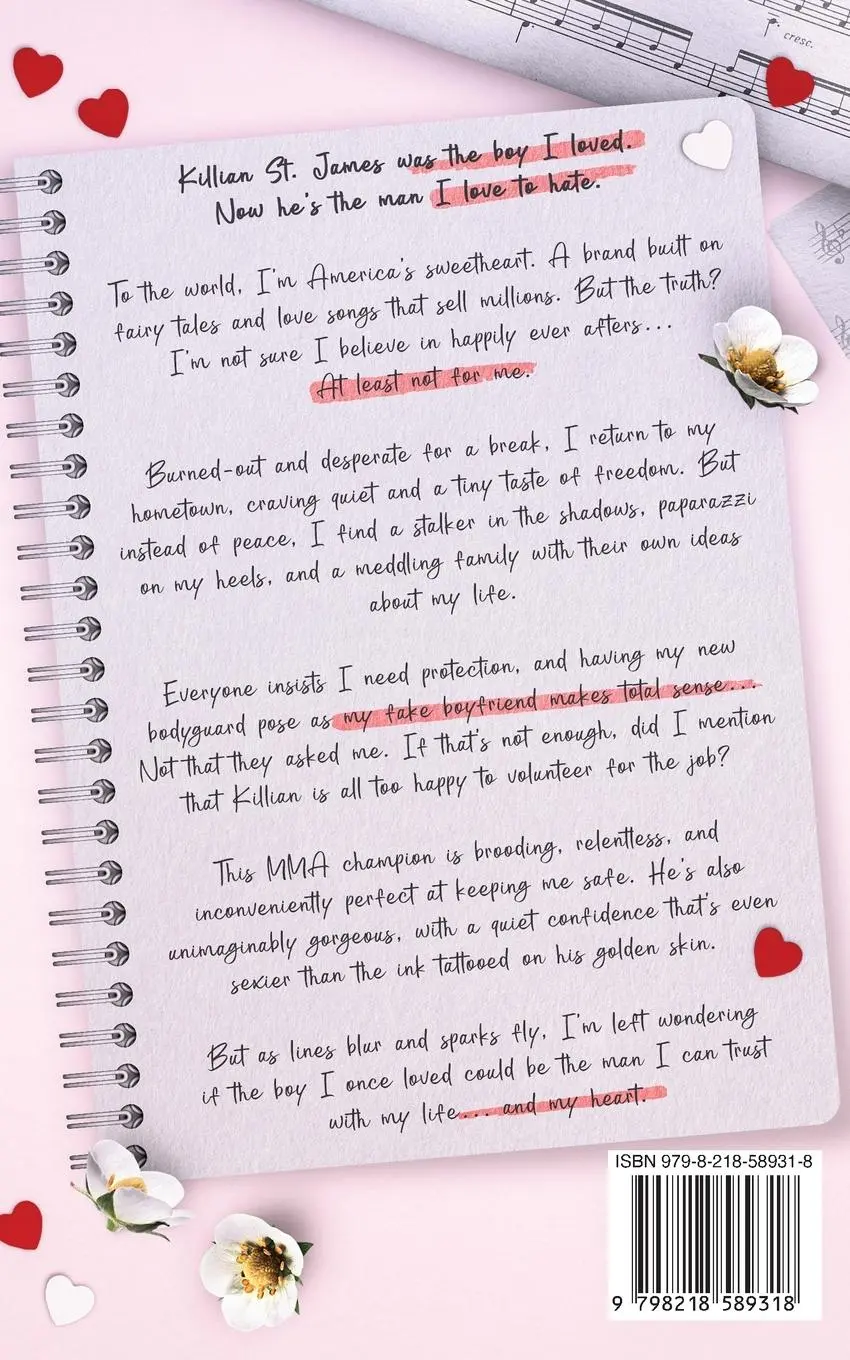 cresc.
Killian St. James was the boy I loved.
Now he's the man I love to hate.
To the world, I'm America's sweetheart. A brand built on
fairy tales and love songs that sell millions. But the truth?
I'm not sure I believe in happily ever afters...
At least not for me.
Burned-out and desperate for a break, I return to my
hometown, craving quiet and a tiny taste of freedom. But
instead of peace, I find a stalker in the shadows, paparazzi
on my heels, and a meddling family with their own ideas
about my life.
Everyone insists I need protection, and having my new
bodyguard pose as my fake boyfriend makes total sense...
Not that they asked me. If that's not enough, did I mention
that Killian is all too happy to volunteer for the job?
This MMA champion is brooding, relentless, and
inconveniently perfect at keeping me safe. He's also
unimaginably gorgeous, with a quiet confidence that's even
sexier than the ink tattooed on his golden skin.
But as lines blur and sparks fly, I'm left wondering
if the boy I once loved could be the man I can trust
with my life... and my heart.
ISBN 979-8-218-58931-8
9 798218 589318